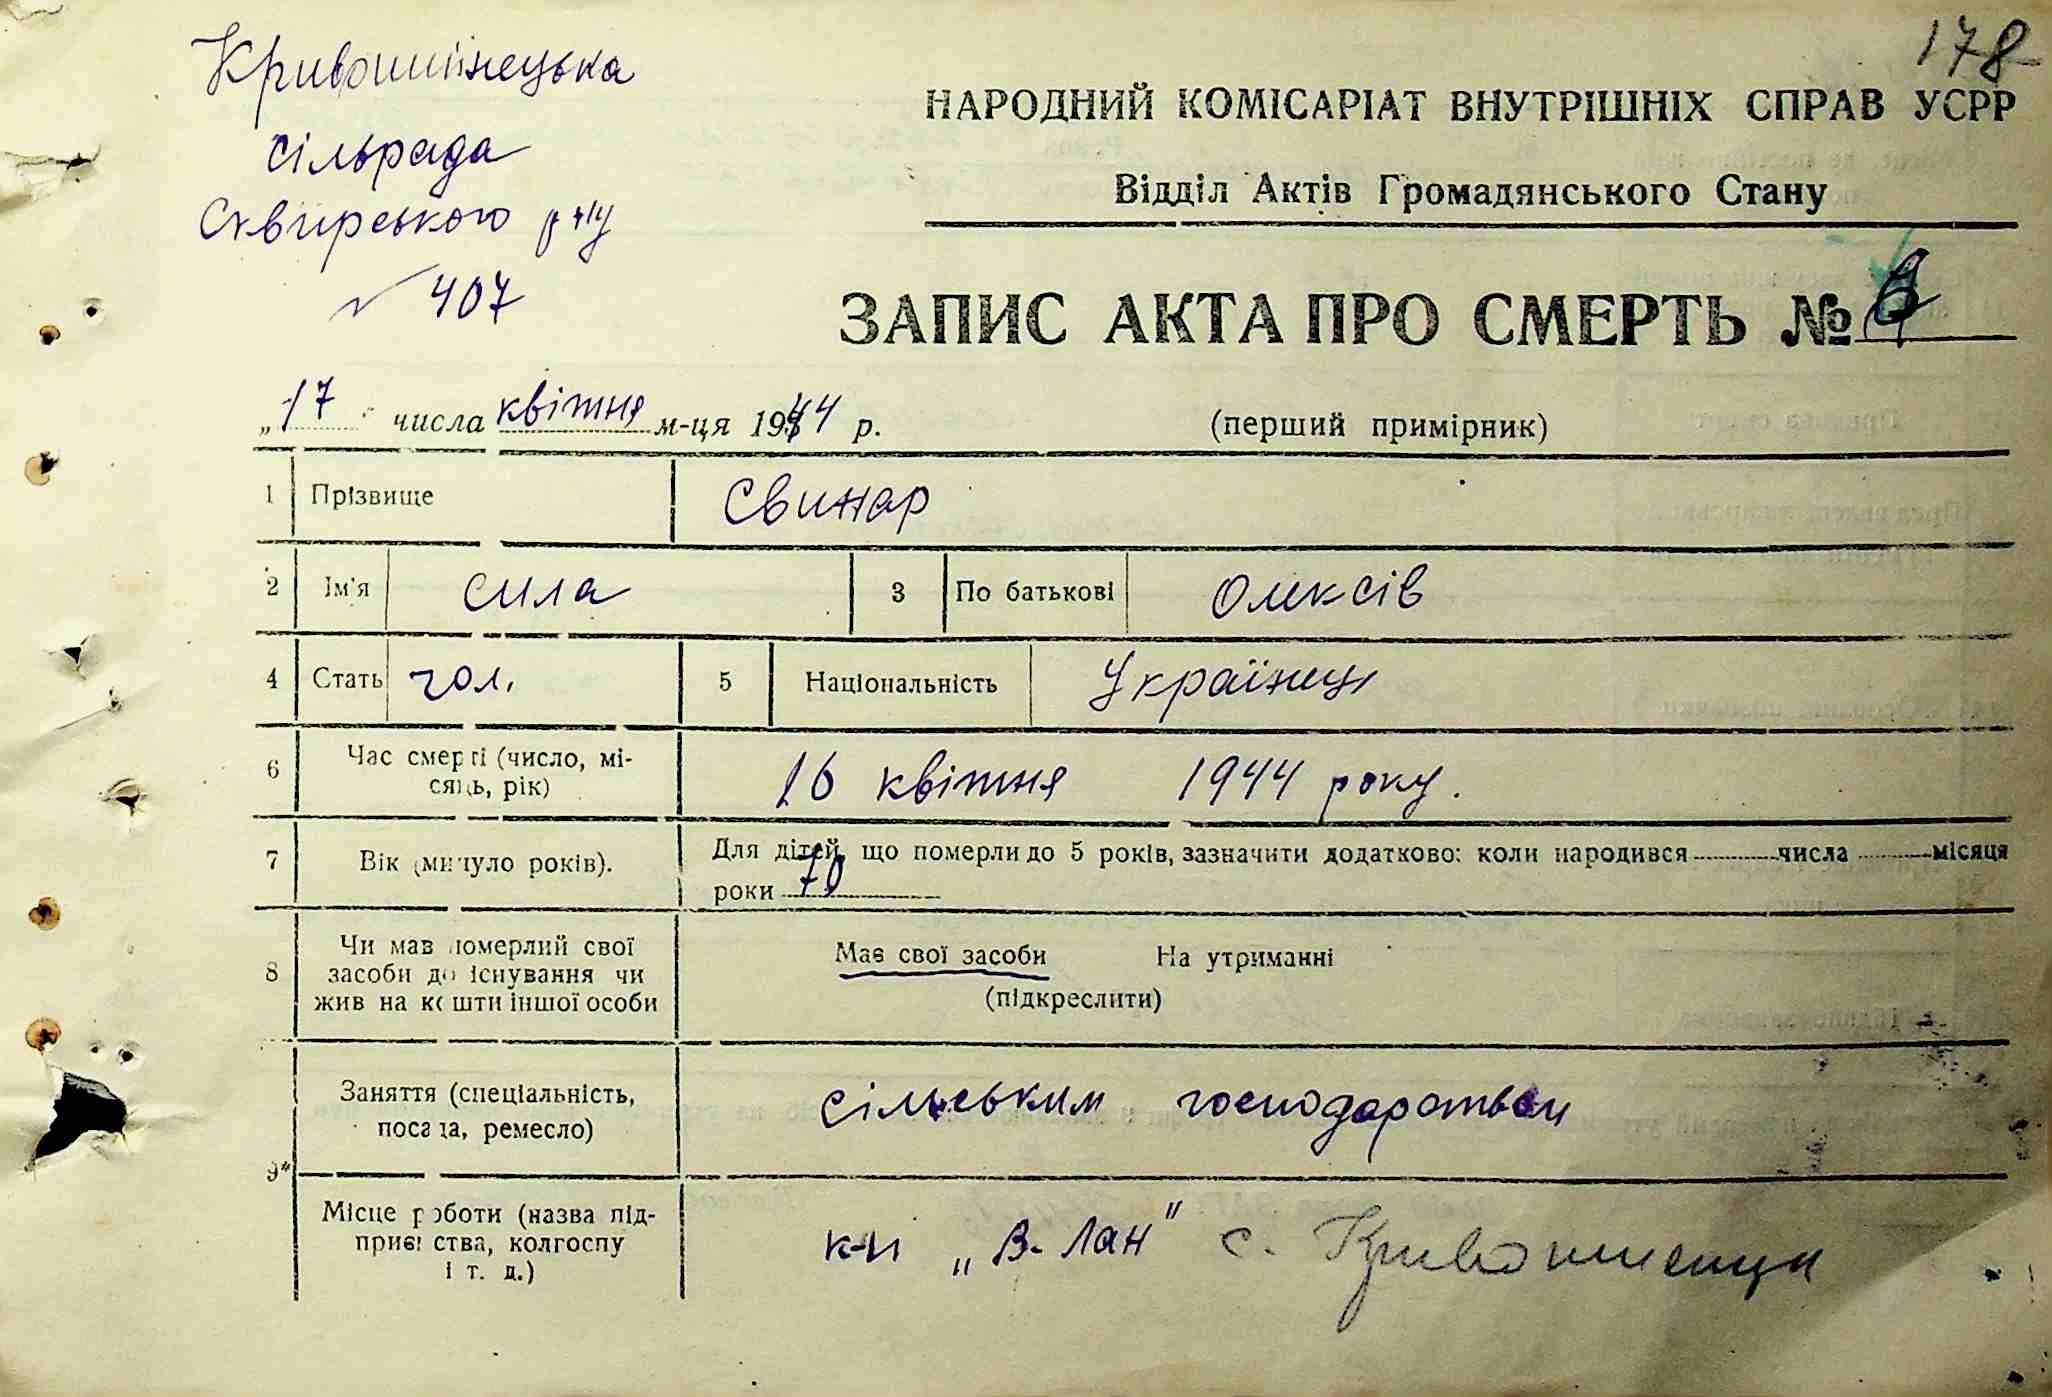 178
Кривошиїнецька
сільрада
Сквирського р-ну
№ 407
НАРОДНИЙ КОМІСАРІАТ ВНУТРІШНІХ СПРАВ УСРР
Відділ Актів Громадянського Стану
ЗАПИС АКТА ПРО СМЕРТЬ №
„17" числа квітня м-ця 1944 р. (перший примірник)
1 Прізвище Свинар
2 Ім'я Сила 3 По батькові Олексів
4 Стать чол. 5 Національність Українець
6 Час смерті (число, мі-
сяць, рік) 16 квітня 1944 року.
7 Вік (минуло років). Для дітей, що померли до 5 років, зазначити додатково: коли народився числа місяця
роки 70
8 Чи мав померлий свої
засоби до існування чи
жив на кошти іншої особи
Має свої засоби На утриманні
(підкреслити)
9* Заняття (спеціальність,
посада, ремесло) сільським господарством
Місце роботи (назва під-
приємства, колгоспу
і т. д.) к-п „В-Лан" с. Кривошиєнци